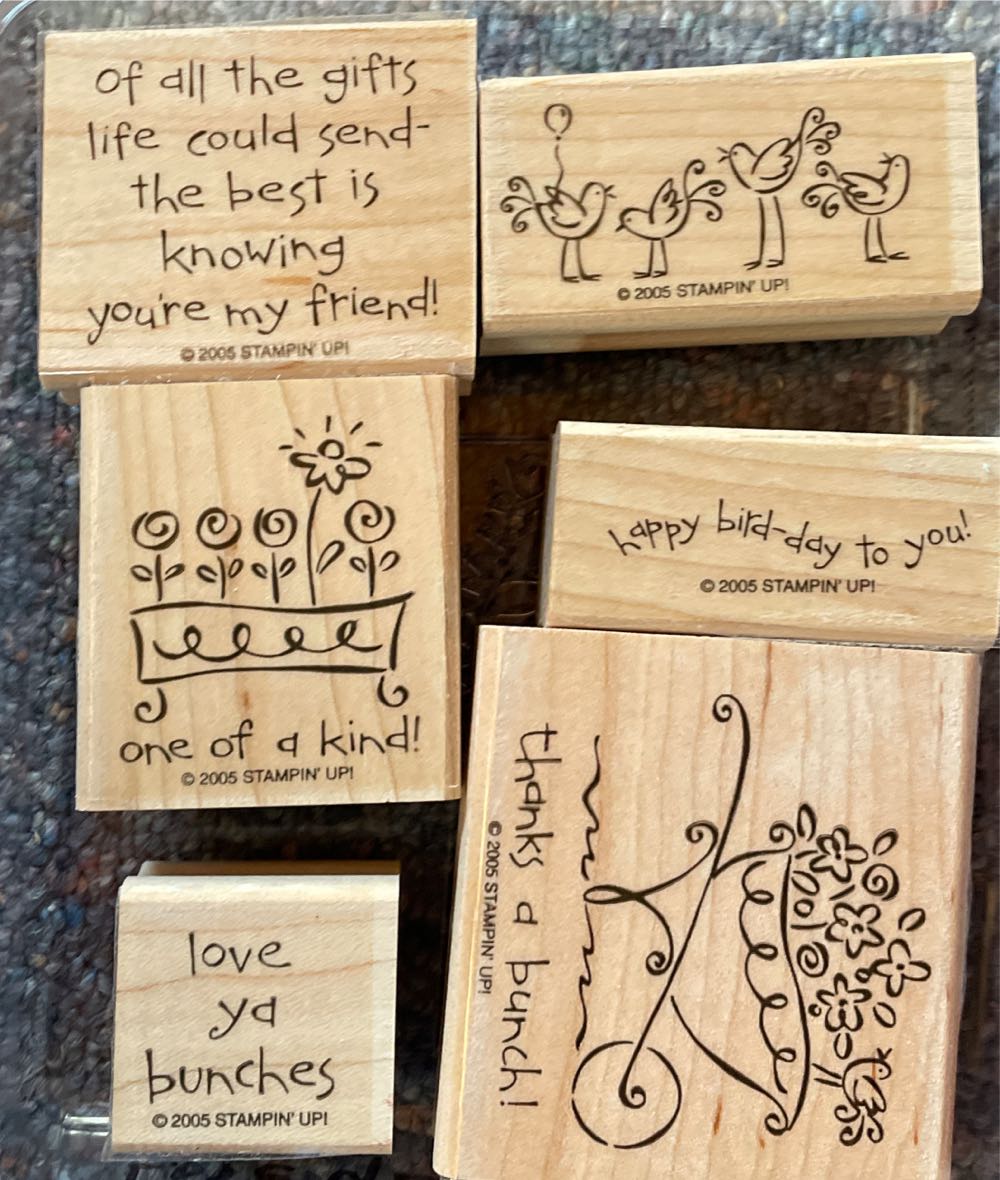 of all the gifts
life could send-
the best is
knowing
you're my friend!
© 2005 STAMPIN' UP!
© 2005 STAMPIN' UP!
one of a kind!
© 2005 STAMPIN' UP!
happy bird-day to you!
© 2005 STAMPIN' UP!
love
ya
bunches
© 2005 STAMPIN' UP!
thanks a bunch!
© 2005 STAMPIN' UP!